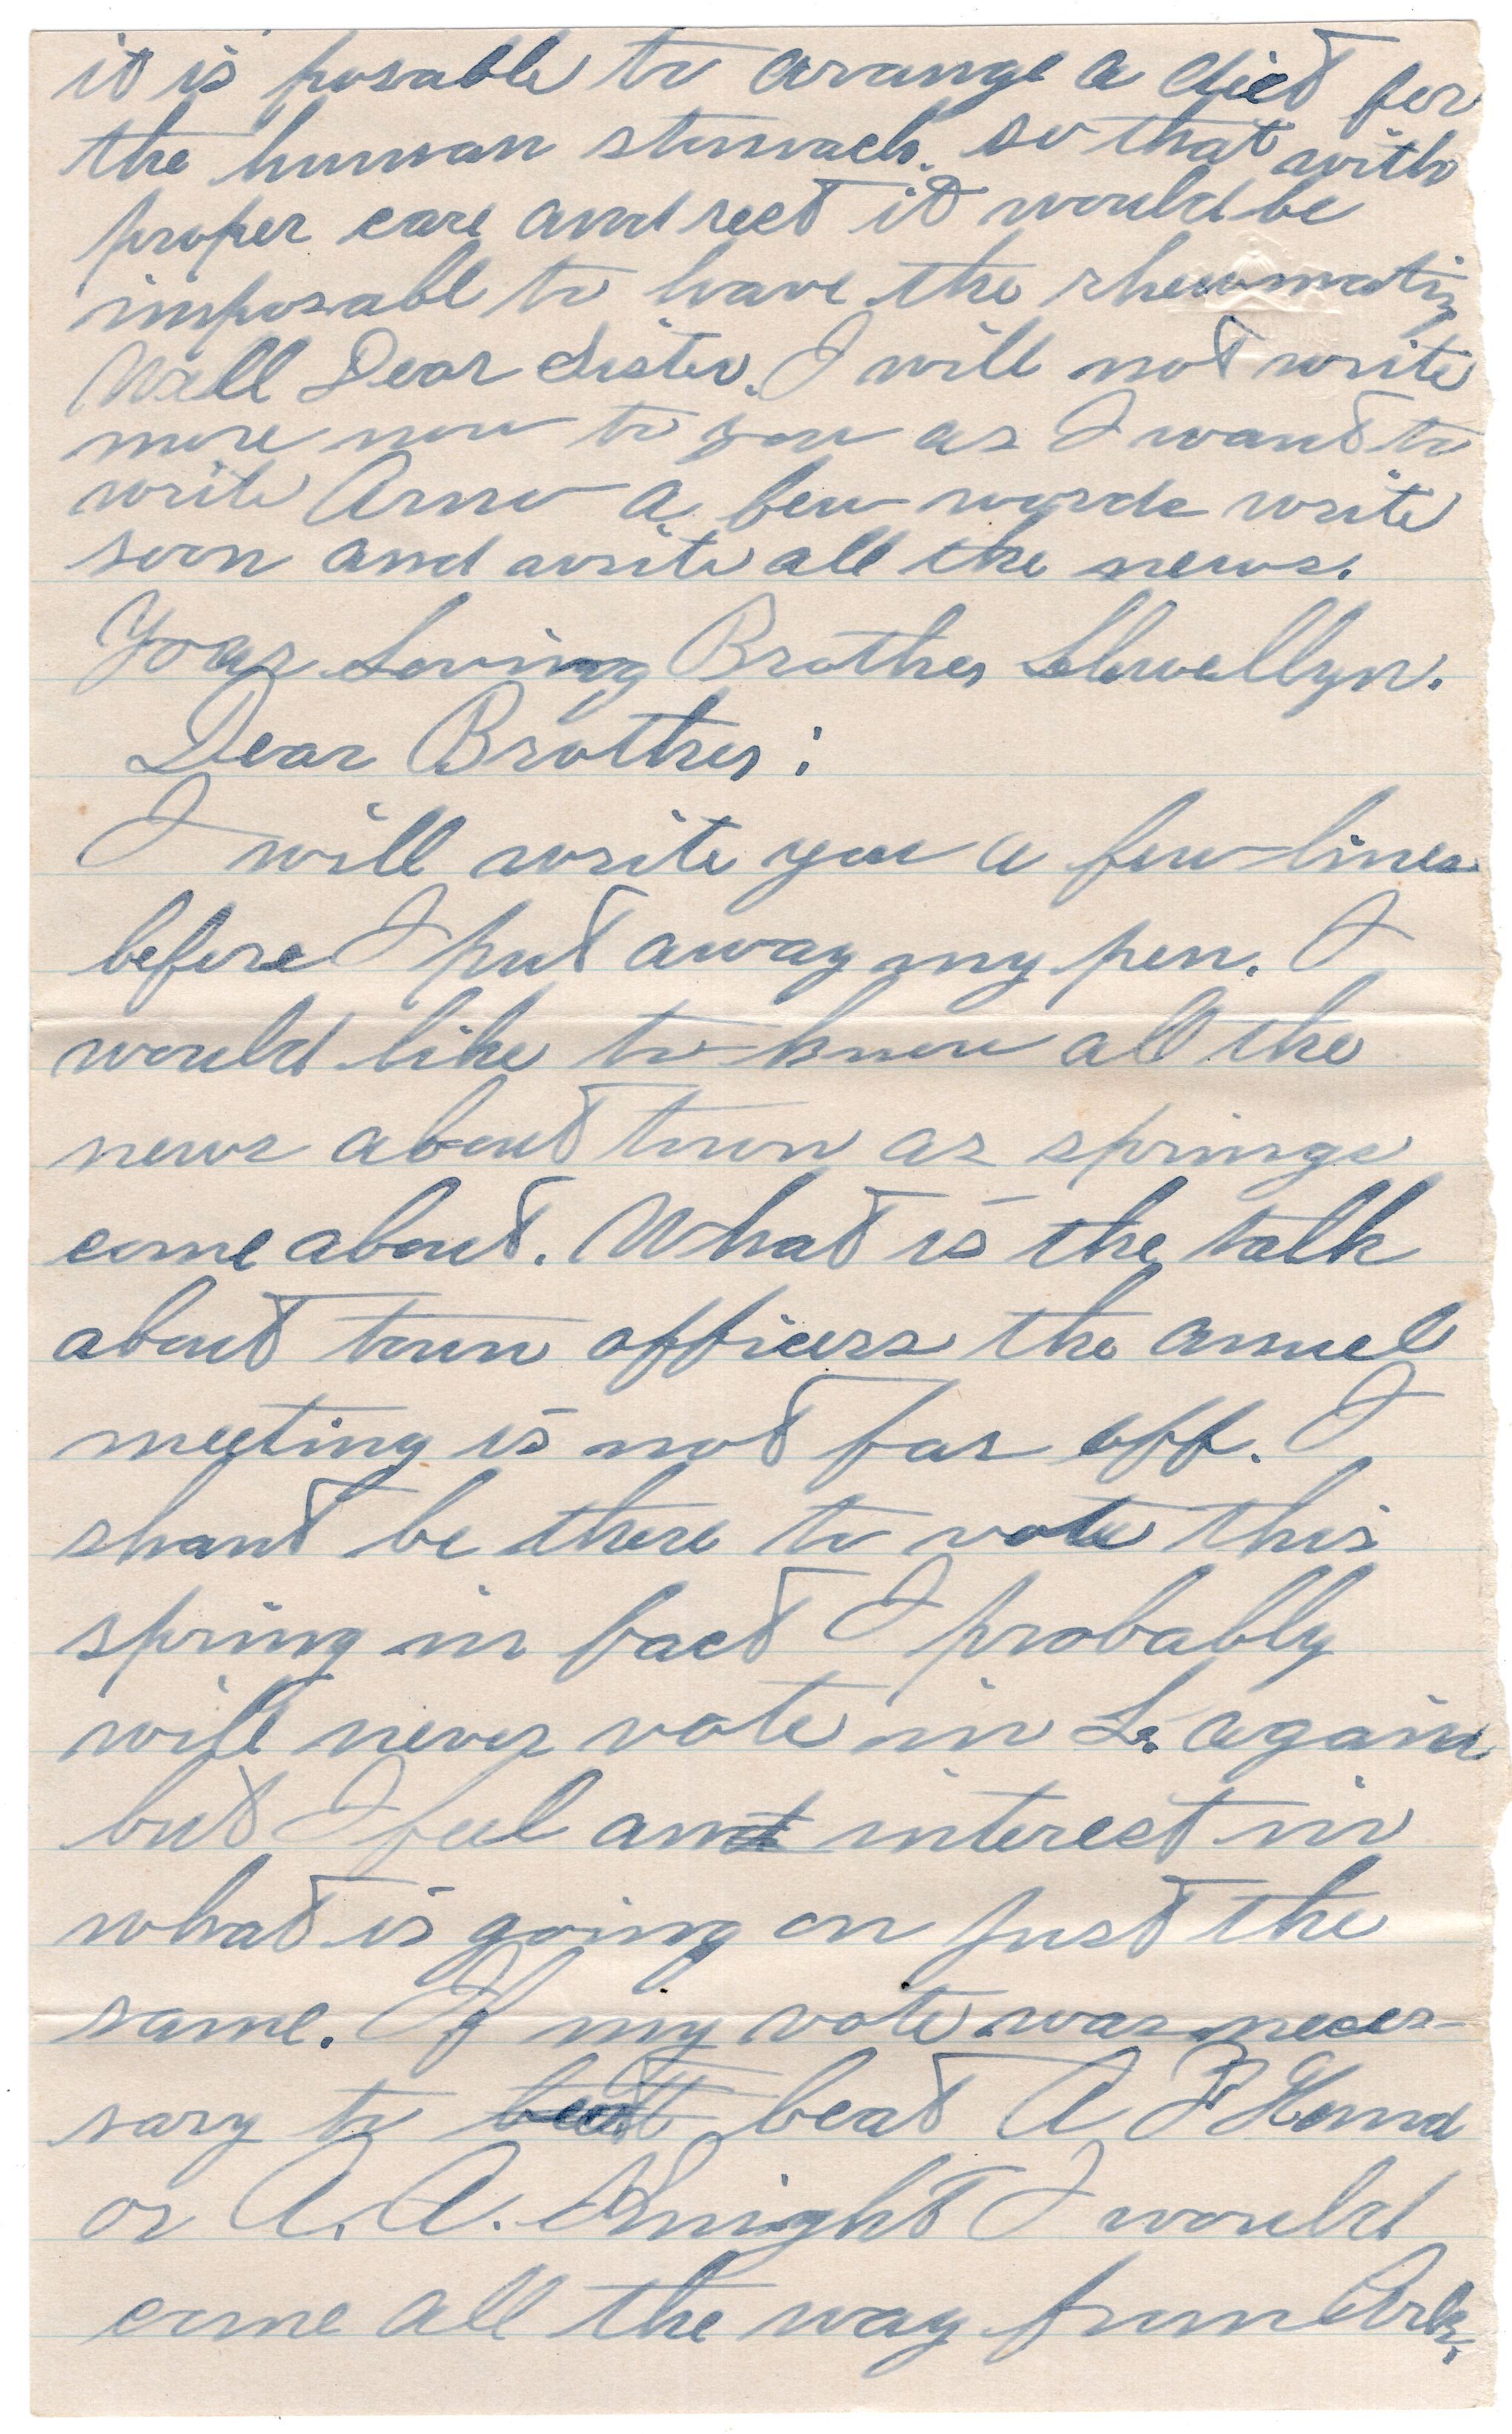 it is posable to arange a diet for
the human stomach. so that with
proper care and rest it would be
imposable to have the rheumatiz
Well Dear Sister. I will not write
more now to you as I want to
write Arno a few words write
soon and write all the news.
Your Loving Brother Llewellyn.
Dear Brother:
I will write you a few lines
before I put away my pen. I
would like to know all the
news about town as springs
come about. What is the talk
about town officers the annuel
meeting is not far off. I
shant be there to vote this
spring in fact I probably
will never vote in L. again
but I feel an interest in
what is going on just the
same. If my vote was neces-
sary to beat A P
or A. A. Knight I would
come all the way from Ark.